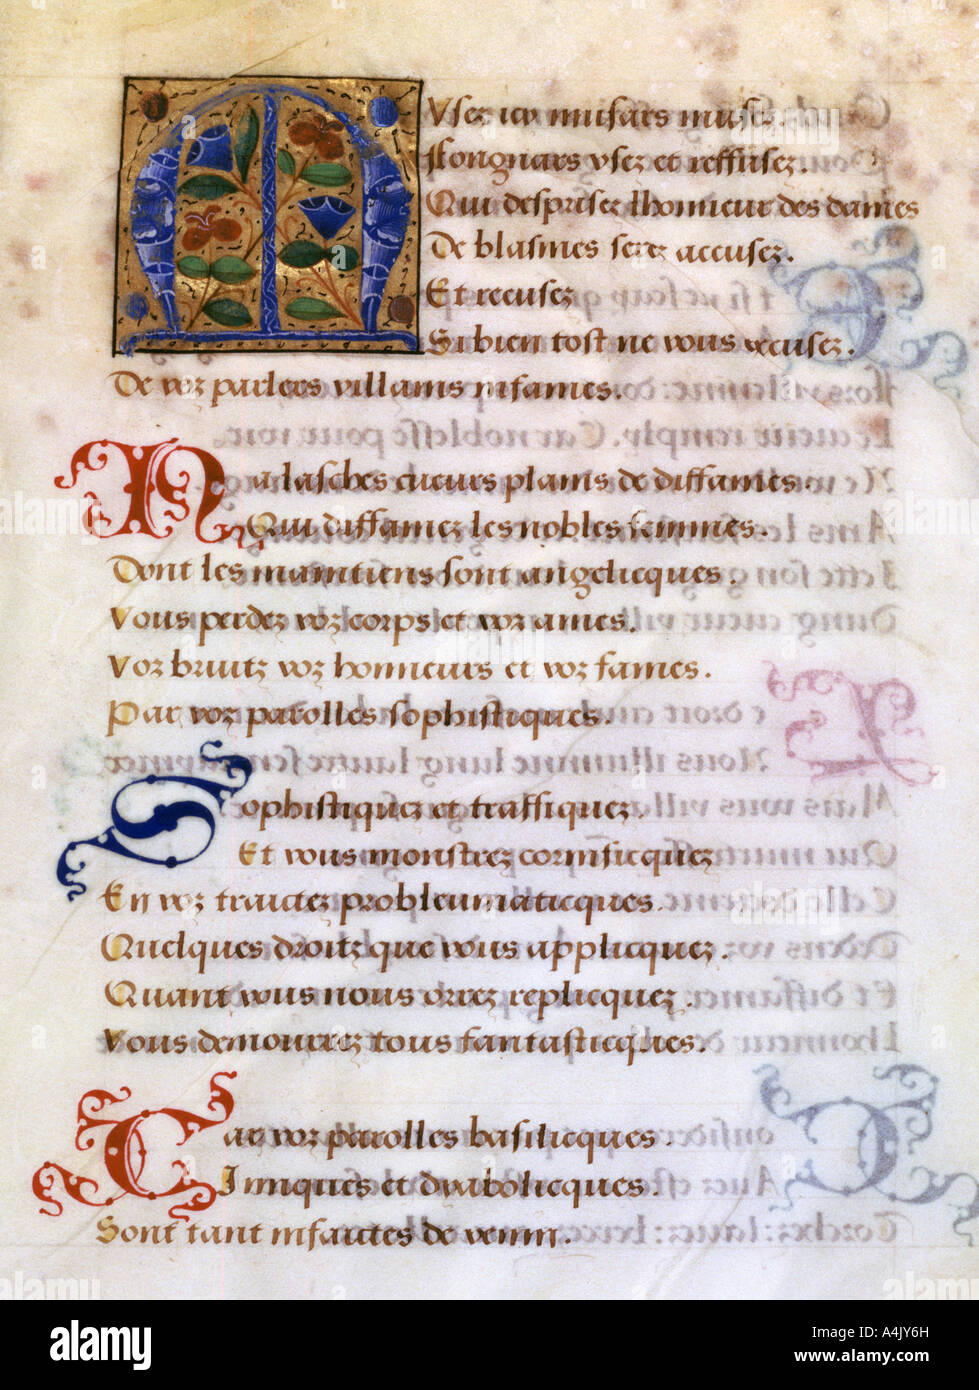 MUsez icy musars musez.
Longnars vsez et reffusez.
Qui desprisez lhonneur des dames
De blasmes serez accusez.
Et recusez
Si bien tost ne vous excusez.
De voz parlers villains infames.
Ha lasches cueurs plains de diffames.
Qui diffamez les nobles femmes.
Dont les maintiens sont angelicques.
Vous perdez voz corps et voz ames.
Voz bruitz voz honneurs et voz fames.
Par voz parolles sophistiques.
Sophistiquez et traffiquez.
Et vous monstrez cornificquez
En voz traictez probleumaticques.
Quelques droitz que vous applicquez.
Quant vous nous orrez replicquez.
Vous demourrez tous fantasticques.
Car voz parolles basilicques.
Iniques et dyabolicques.
Sont tant infaictes de venin.
alamy
Image ID: A4JY6H
www.alamy.com